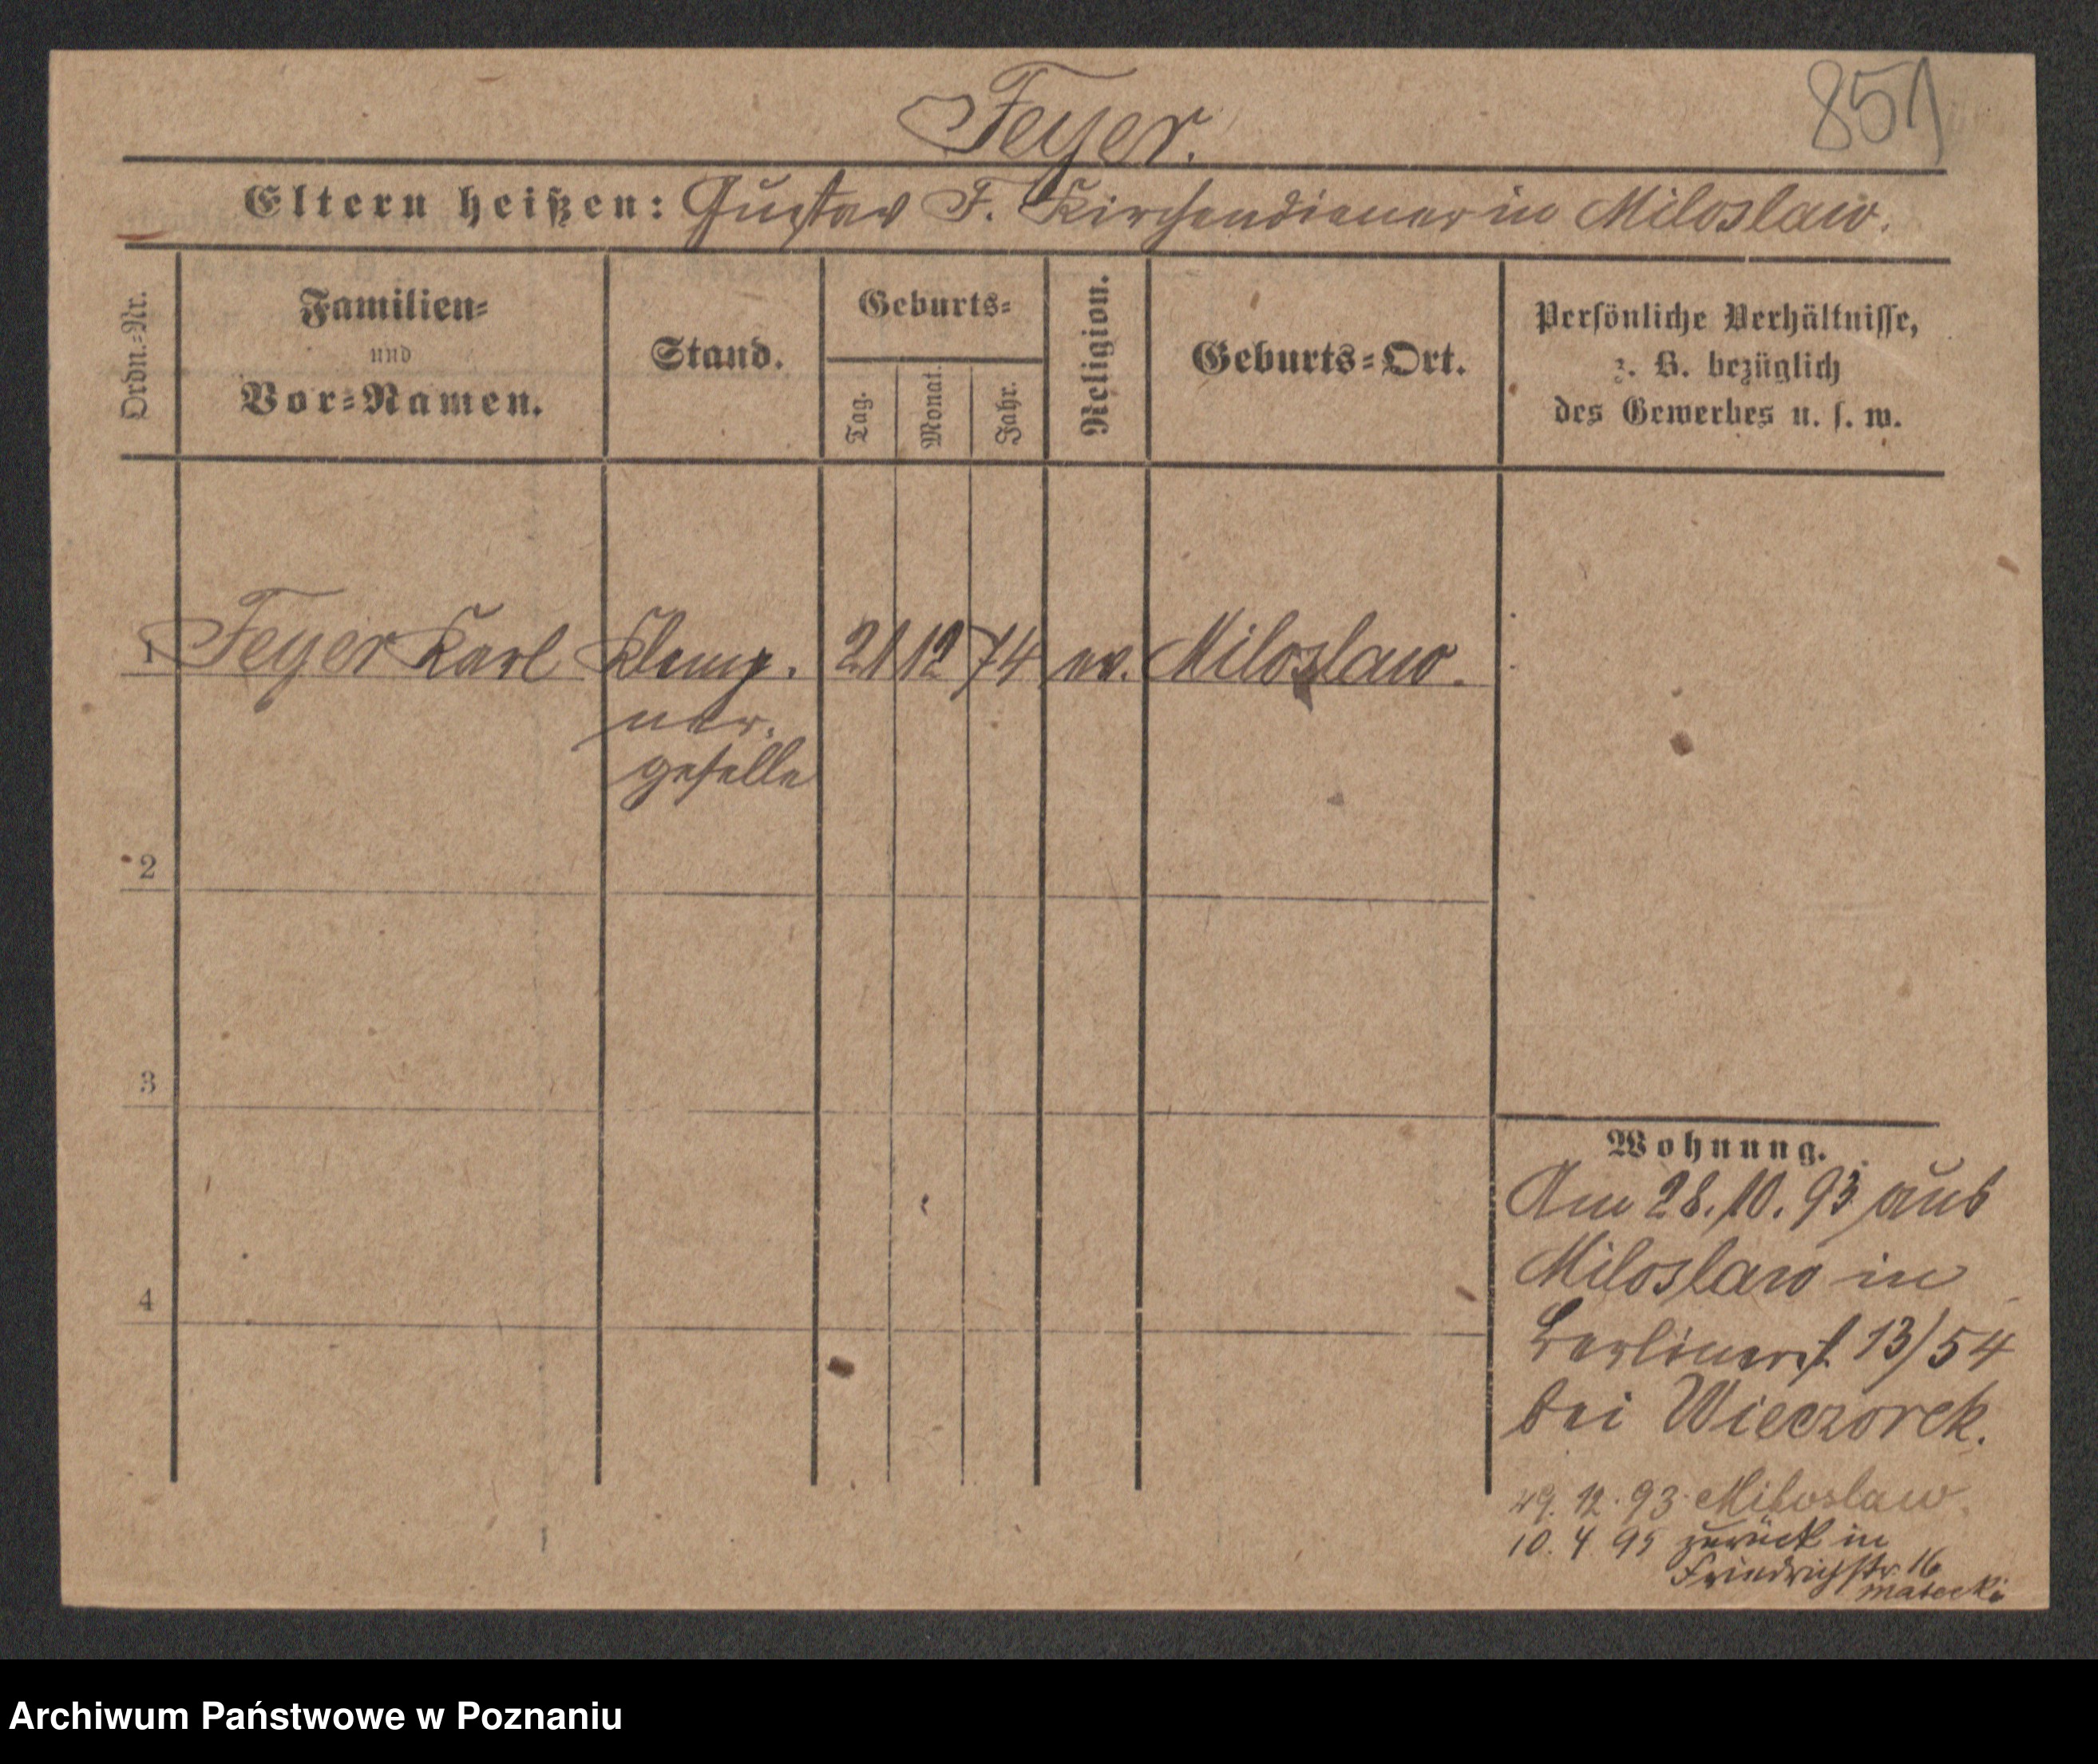 Feyer.
851
Eltern heißen: Gustav F. Kirchendiener in Miloslaw.
Ordn.-Nr.
Familien-
und
Vor-Namen.
Stand.
Geburts-
Tag.
Monat.
Jahr.
Religion.
Geburts-Ort.
Persönliche Verhältnisse,
z. B. bezüglich
des Gewerbes u. s. w.
1 Feyer Karl Klemp. 21 12 74 ev. Miloslaw.
ner.
geselle
2
3
4
Wohnung.
Am 28.10.93 aus
Miloslaw in
Berlinerst 13/54
bei Wieczorek.
12.93 Miloslaw.
10.4 95 zurück in
Friedrichstr 16